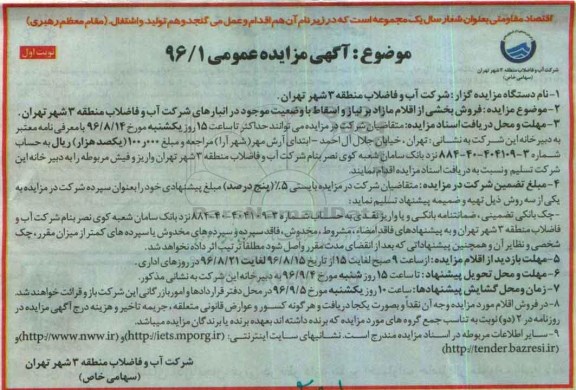 اقتصاد مقاومتی بعنوان شعار سال یک مجموعه است که در زیر نام آن هم اقدام و عمل می گنجد و هم تولید و اشتغال. (مقام معظم رهبری)
نوبت اول
موضوع : آگهی مزایده عمومی ۹۶/۱
شرکت آب و فاضلاب منطقه ۳ شهر تهران
(سهامی خاص)
۱-نام دستگاه مزایده گزار: شرکت آب و فاضلاب منطقه ۳ شهر تهران.
۲-موضوع مزایده: فروش بخشی از اقلام مازاد بر نیاز و اسقاط با وضعیت موجود در انبارهای شرکت آب و فاضلاب منطقه ۳ شهر تهران.
۳-مهلت و محل دریافت اسناد مزایده: متقاضیان شرکت در مزایده می توانند حداکثر تا ساعت ۱۵ روز یکشنبه مورخ ۹۶/۸/۱۴ با معرفی نامه معتبر
به دبیرخانه این شرکت به نشانی : تهران ، خیابان جلال آل احمد - ابتدای آرش مهر (شهر آرا) مراجعه و مبلغ ۱۰۰/۰۰۰ (یکصد هزار) ریال به حساب
شماره ۳-۴۰۴۱۰۹-۴۰-۸۸۴ نزد بانک سامان شعبه کوی نصر بنام شرکت آب و فاضلاب منطقه ۳ شهر تهران واریز و فیش مربوطه را به دبیرخانه این
شرکت تسلیم و نسبت به دریافت اسناد مزایده اقدام نمایند.
۴-مبلغ تضمین شرکت در مزایده: متقاضیان شرکت در مزایده بایستی ۵٪ (پنج درصد) مبلغ پیشنهادی خود را بعنوان سپرده شرکت در مزایده به
یکی از سه روش ذیل تهیه و ضمیمه پیشنهاد تسلیم نماید:
-چک بانکی تضمینی ، ضمانتنامه بانکی و یا واریز نقدی به حساب شماره ۳-۴۰۴۱۰۹-۴۰-۸۸۴ نزد بانک سامان شعبه کوی نصر بنام شرکت آب و
فاضلاب منطقه ۳ شهر تهران و به پیشنهادهای فاقد امضاء ، مشروط ، مخدوش ، فاقد سپرده و سپرده های مخدوش یا سپرده های کمتر از میزان مقرر، چک
شخصی و نظایر آن و همچنین پیشنهاداتی که بعد از انقضای مدت مقرر واصل شود مطلقاً ترتیب اثر داده نخواهد شد.
۵-مهلت بازدید از اقلام مزایده : از ساعت ۹ صبح لغایت ۱۵ از تاریخ ۹۶/۸/۱۵ لغایت ۹۶/۸/۲۱ در روزهای اداری.
۶-مهلت و محل تحویل پیشنهاد : تا ساعت ۱۵ روز شنبه مورخ ۹۶/۹/۴ به دبیرخانه این شرکت به نشانی مذکور.
۷-زمان و محل گشایش پیشنهادها: ساعت ۱۰ روز یکشنبه مورخ ۹۶/۹/۵ در محل دفتر قراردادها و امور بازرگانی این شرکت باز و قرائت خواهند شد.
۸-در فروش اقلام مورد مزایده وجه آن نقداً و بصورت یکجا دریافت و هرگونه کسور و عوارض قانونی متعلقه ، جریمه تاخیر و هزینه درج آگهی مزایده در
روزنامه در ۲ (دو) نوبت به تناسب جمع گروه های مورد مزایده که برنده داشته اند بعهده برنده یا برندگان مزایده میباشد.
۹-سایر اطلاعات مربوطه در اسناد مزایده مندرج است. نشانیهای سایت اینترنتی: (http://iets.mporg.ir) و (http://www.nww.ir) و
(http://tender.bazresi.ir)
شرکت آب و فاضلاب منطقه ۳ شهر تهران
(سهامی خاص)